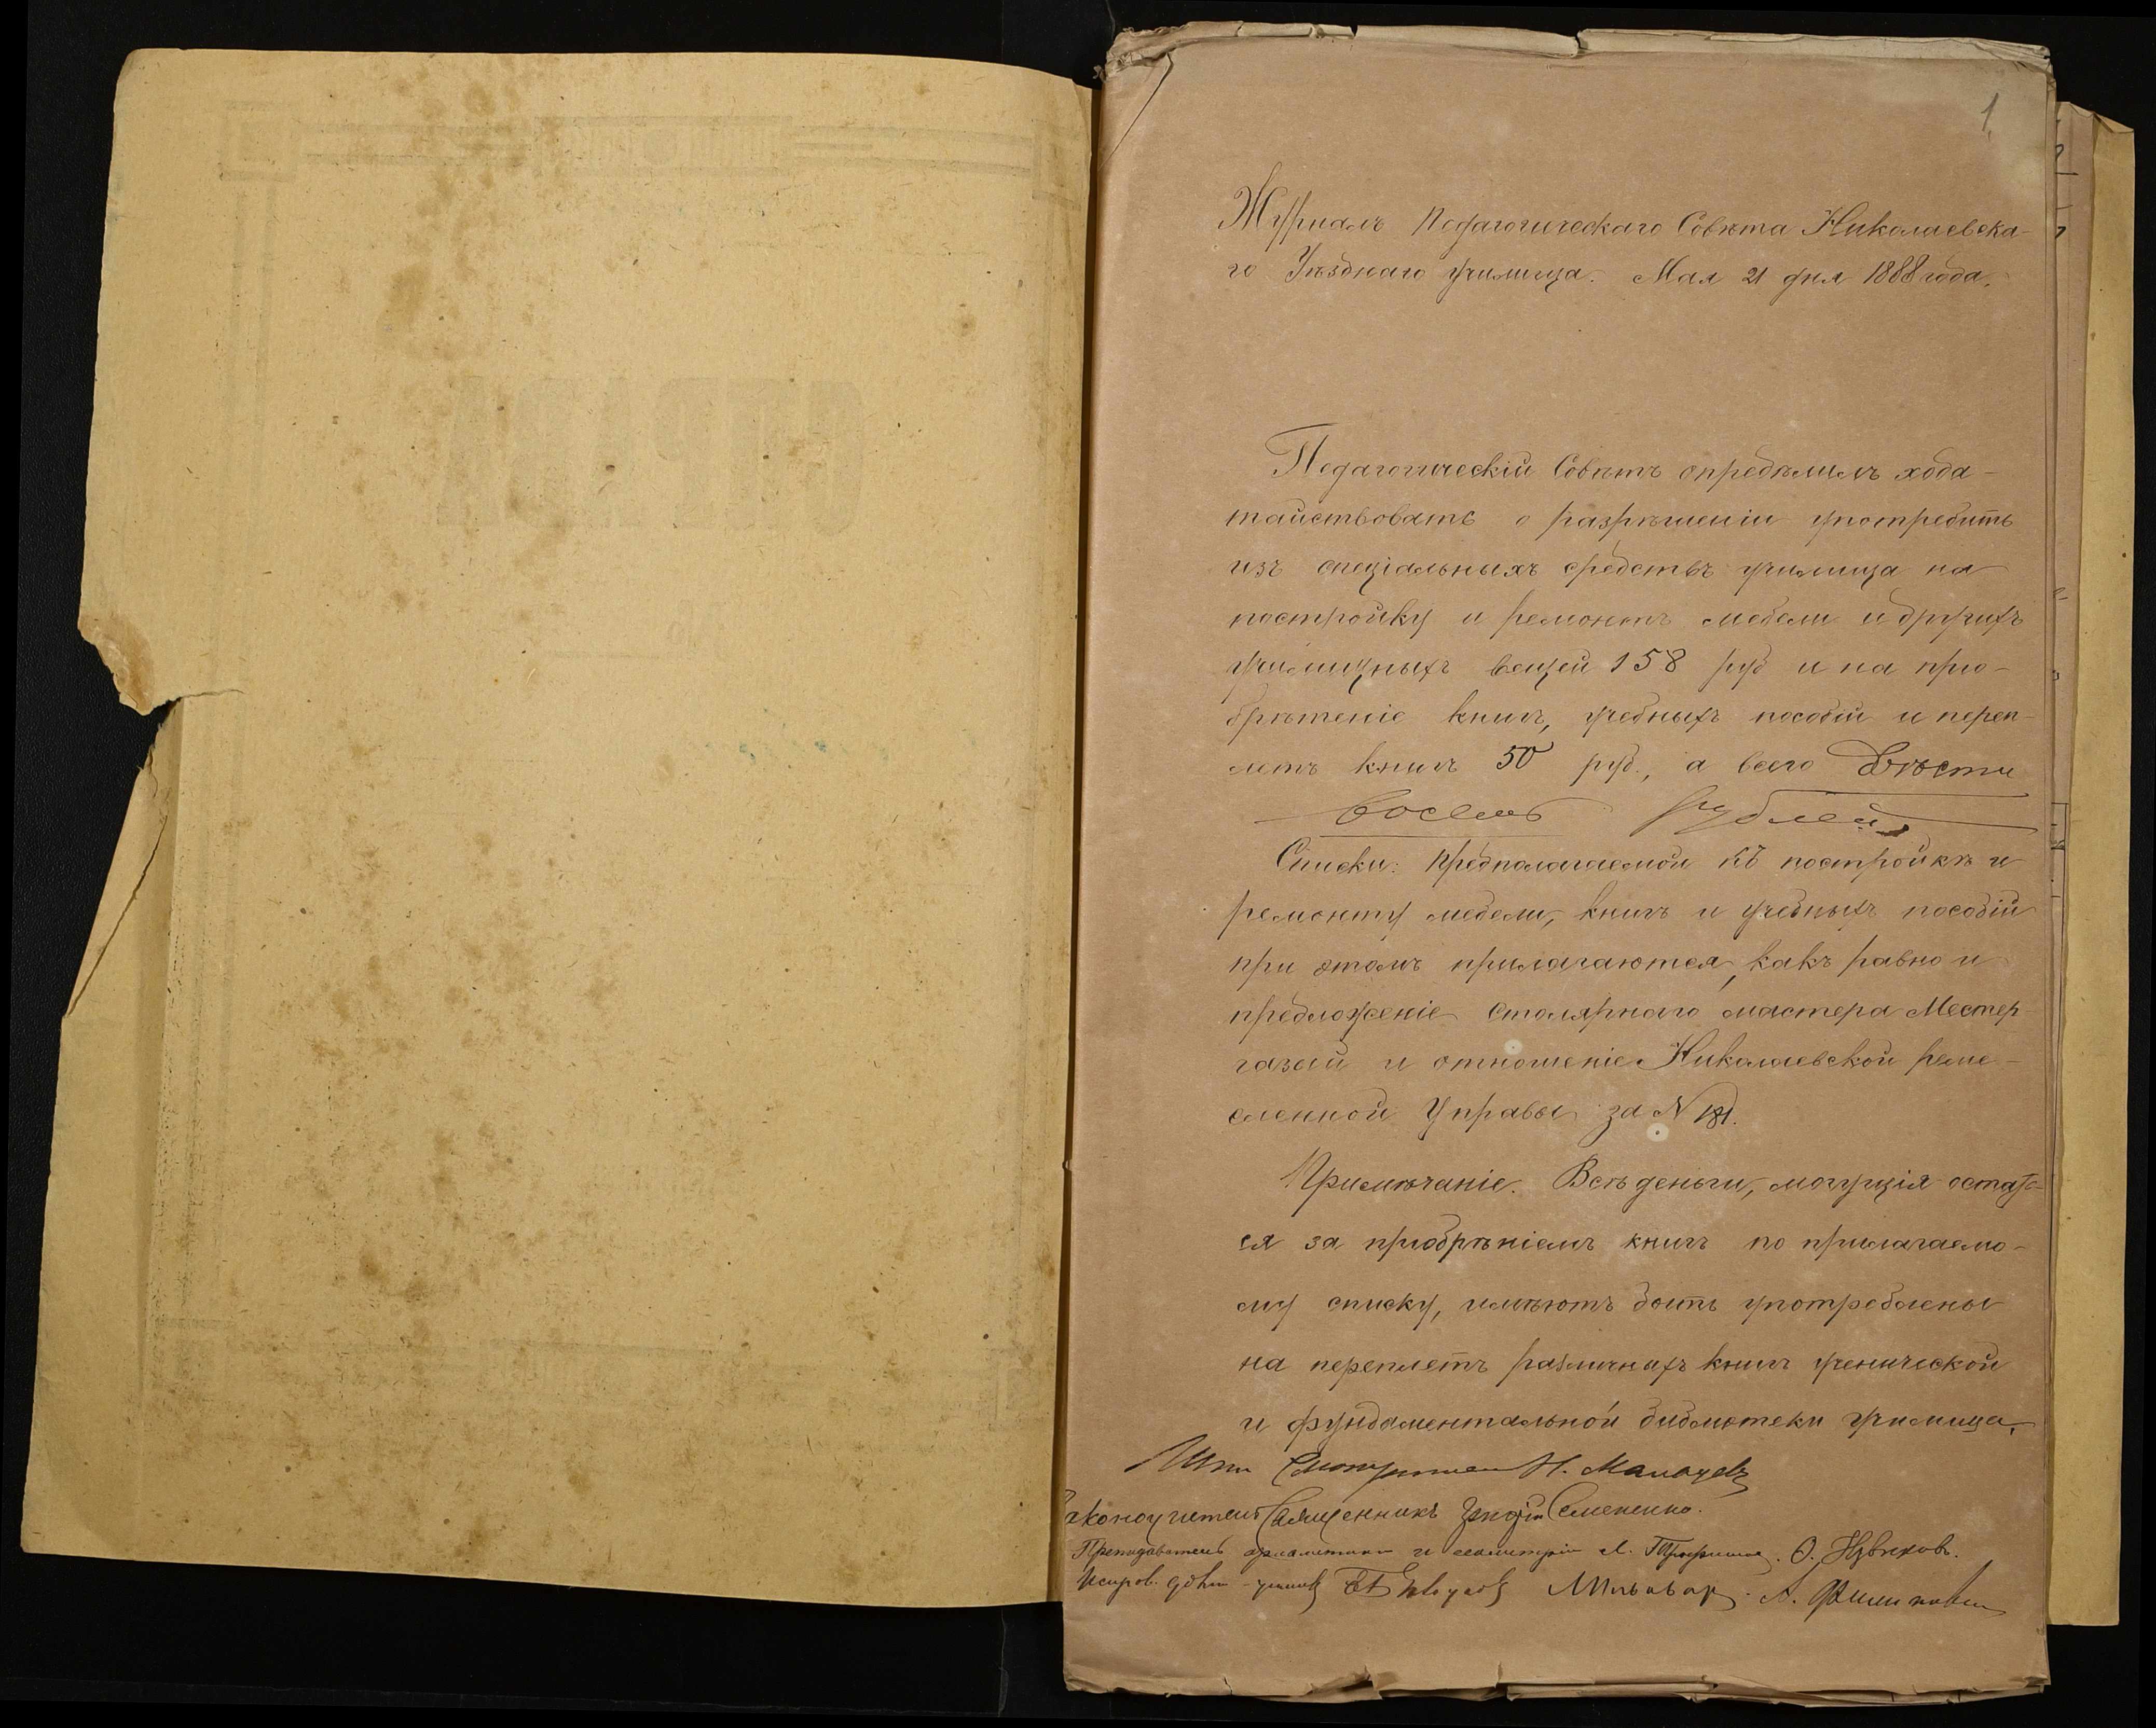 1
Журналъ Педагогическаго Совѣта Николаевска-
го Уѣзднаго училища. Мая 21 дня 1888 года.
Педагогическій Совѣтъ опредѣлилъ хода-
тайствовать о разрѣшеніи употребить
изъ спеціальныхъ средствъ училища на
постройку и ремонтъ мебели и другихъ
училищныхъ вещей 158 руб и на прі-
обрѣтеніе книгъ, учебныхъ пособій и переп-
летъ книгъ 50 руб., а всего Двѣсти
восемь рублей
Списки: предполагаемой къ постройкѣ и
ремонту мебели, книгъ и учебныхъ пособій
при этомъ прилагаются, какъ равно и
предложеніе столярнаго мастера Местер
газай и отношеніе Николаевской реме-
сленной Управы за N 181.
Примѣчаніе. Всѣ деньги, могущія остать-
ся за пріобрѣніемъ книгъ по прилагаемо-
му списку, имѣютъ быть употреблены
на переплетъ различныхъ книгъ ученической
и фундаментальной библіотеки училища.
Смотритель Н.
Законоучитель Священникъ Семененко.
Преподаватель ариѳметики и геометріи